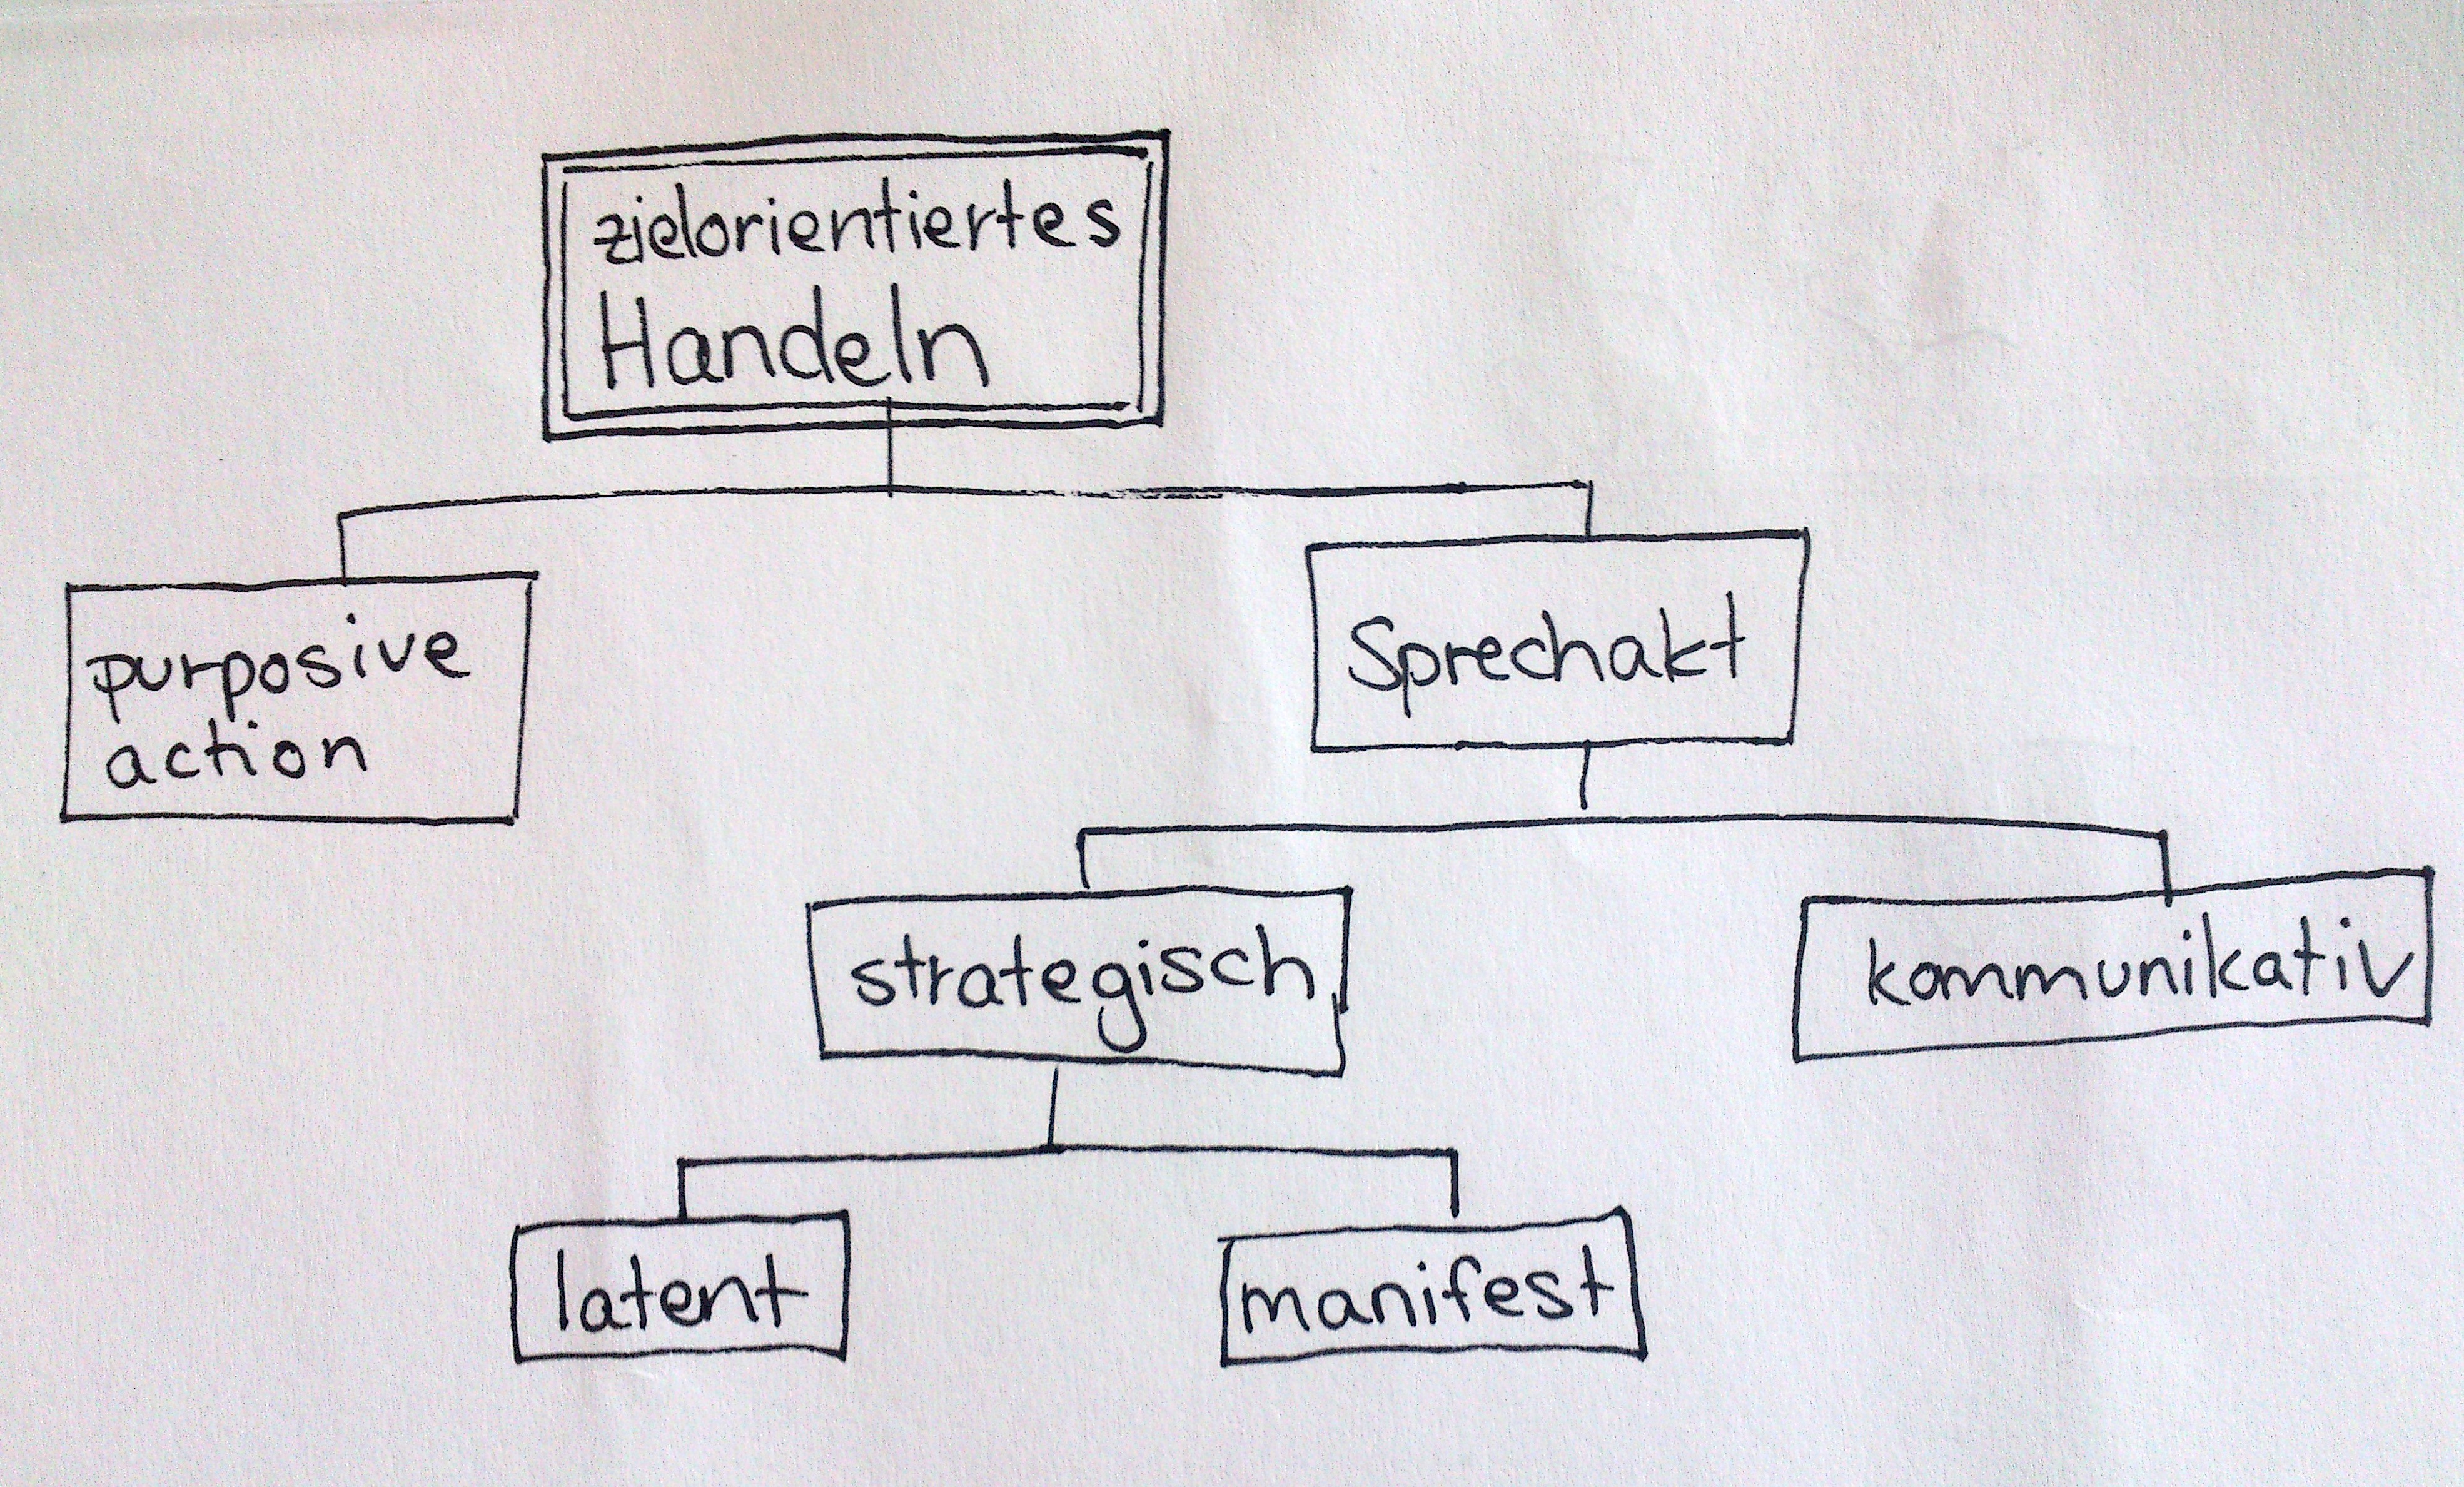 zielorientiertes
Handeln
purposive
action
Sprechakt
strategisch
kommunikativ
latent
manifest